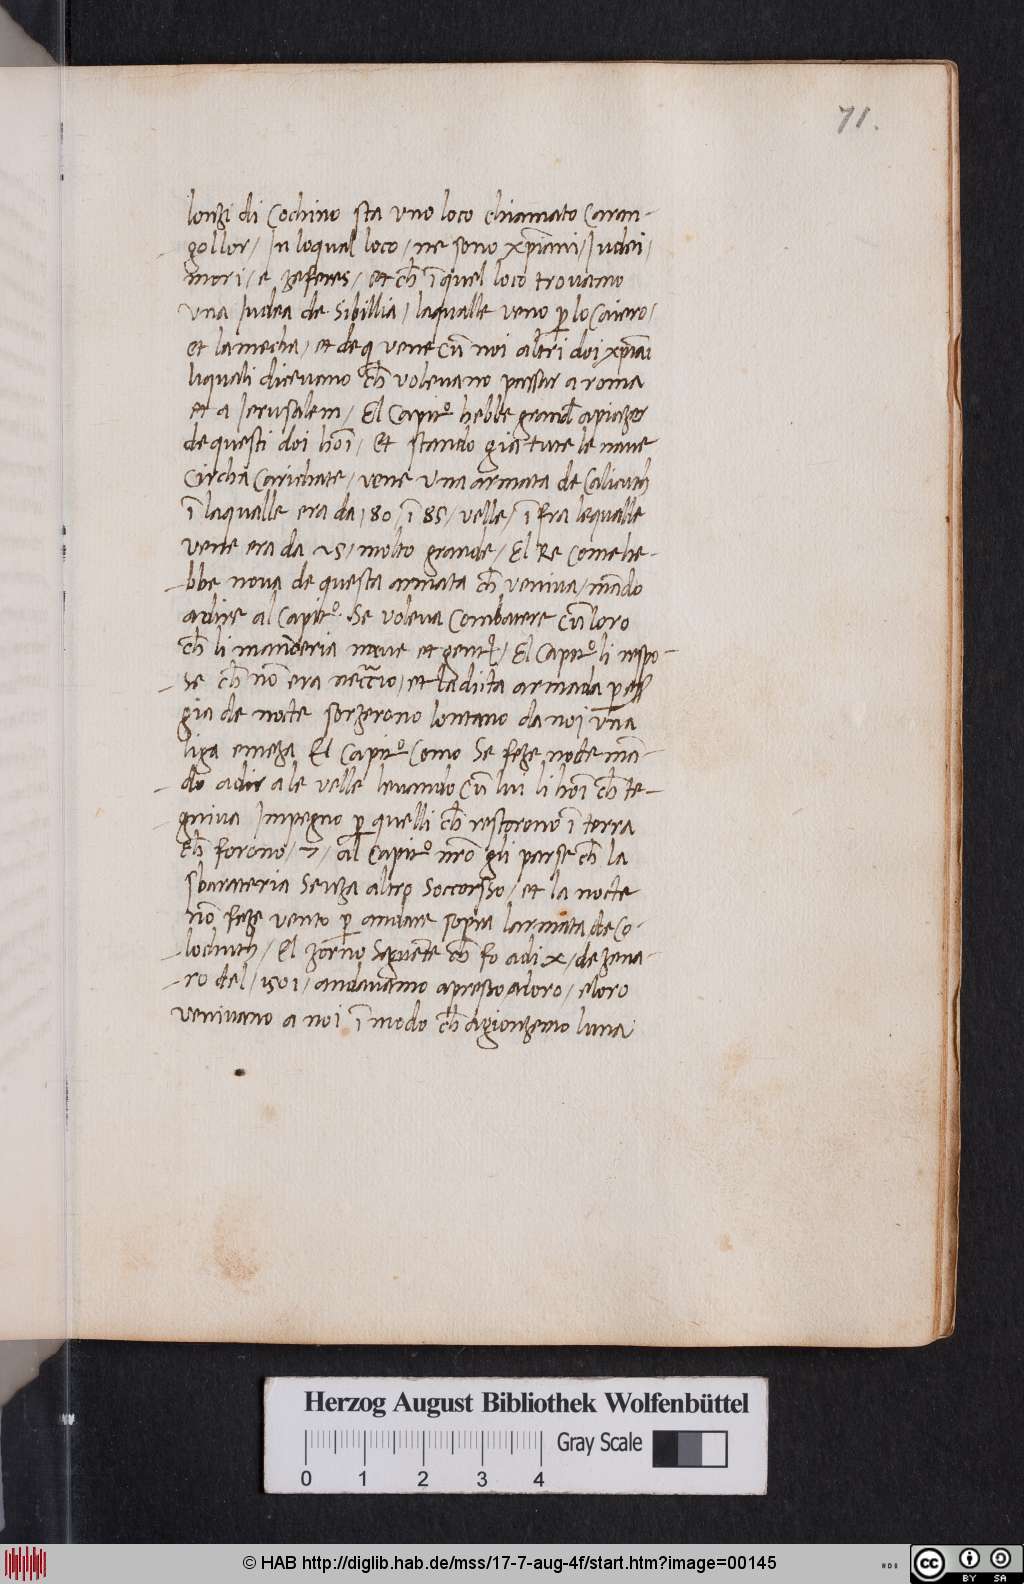 71.
lonzi di Cochino sta vno loco chiamato Caran-
gollor / In loqual loco / ne sono xp̃iani / Iudei /
mori / e zeferes / et ch̃ ĩ quel loco trouamo
vna Iudea de Sibillia / laqualle veno p̱ lo Caiero /
et lamecha / et de q̱ vene cũ noi altri doi xp̃iãi
liquali diceuano ch̃ voleuano passar a roma
et a Ierusalem / El Capit.º hebbe grand̃ apiazer
de questi doi hoĩ / Et stando giã tute le naue
Circha Carichate / vene vna armata de Calicuth
ĩ laqualle era da 180 / ĩ 85 / velle / ĩ fra lequalle
vene era da 25 / molto grande / El Re Come he-
bbe noua de questa armata ch̃ veniua / mãdo
adire al Capit.º Se voleua Combatere cũ loro
ch̃ li manderia naue et gente / El Capit.º li respo-
se ch̃ nõ era neccio / et la dicta armada p̱ ess̃
gia de nocte sorzerono lontano da noi vna
liga emeza El Capit.º Como Se feze nocte mã-
do adir ale velle leuando cũ lui li hoĩ ch̃ te-
gniua Impegno p̱ quelli ch̃ restorono ĩ terra
ch̃ forono / 7 / al Capit.º nrõ gli parse ch̃ la
sbarateria Senza altro Soccorsso / et la nocte
nõ feze vento p̱ andare sopra larmata de Co-
lochuth / El zorno Seguẽte ch̃ fo adi x / de zena-
ro del / 1501 / andauamo apresso aloro / eloro
veniuano a noi ĩ modo ch̃ agionzemo luna
Herzog August Bibliothek Wolfenbüttel
Gray Scale
0 1 2 3 4
© HAB http://diglib.hab.de/mss/17-7-aug-4f/start.htm?image=00145
cc BY SA